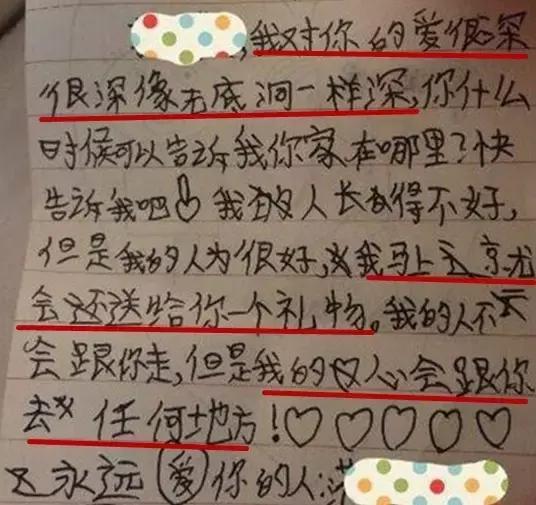 ,我对你的爱很深
很深像无底洞一样深,你什么
时候可以告诉我你家在哪里?快
告诉我吧 我人长得不好,
但是我的人为很好,我马上就
会还送给你一个礼物。我的人不
会跟你走,但是我的心会跟你
去 任何地方!♡♡♡♡♡
永远爱你的人: